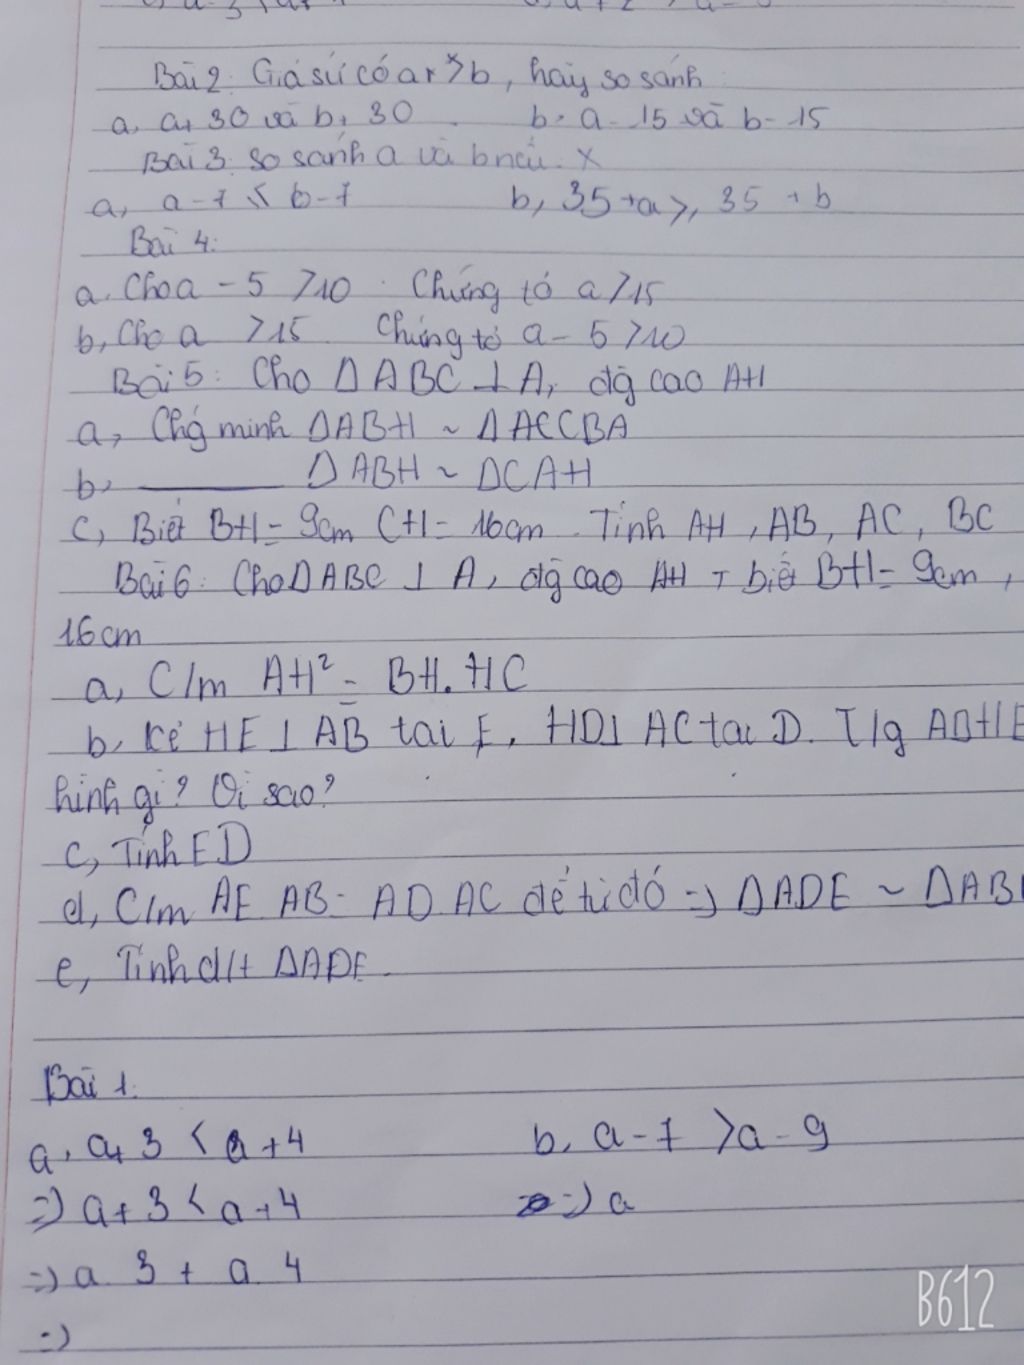 Bài 2: Giả sử có a > b, hãy so sánh
a, a+ 30 và b+ 30 b. a - 15 và b - 15
Bài 3: so sánh a và b nếu. x
a, a - 7 < b - 7 b, 35 + a >, 35 + b
Bài 4:
a. Cho a - 5 > 10 . Chứng tỏ a > 15
b, Cho a > 15 Chứng tỏ a - 5 > 10
Bài 5: Cho Δ ABC ⊥ A, đg cao AH
a, Chg minh Δ ABH ~ Δ CBA
b. ——— Δ ABH ~ Δ CAH
c, Biết BH = 9cm CH = 16cm. Tính AH, AB, AC, BC
Bài 6: Cho Δ ABC ⊥ A, đg cao AH biết BH = 9cm,
16 cm
a, C/m AH² = BH. HC
b, Kẻ HE ⊥ AB tại E, HD ⊥ AC tại D. T/g ADHE
hình gì? Vì sao?
c, Tính ED
d, C/m AE AB = AD AC để từ đó => Δ ADE ~ Δ AB
e, Tính d/t Δ ADE.
Bài 1:
a, a+ 3 < a + 4 b, a - 7 > a - 9
=> a + 3 < a + 4 => a
=> a 3 + a 4
=>
B612